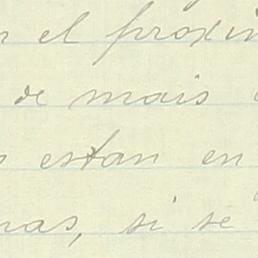 el proxim
de mais
estan en
nas, si se